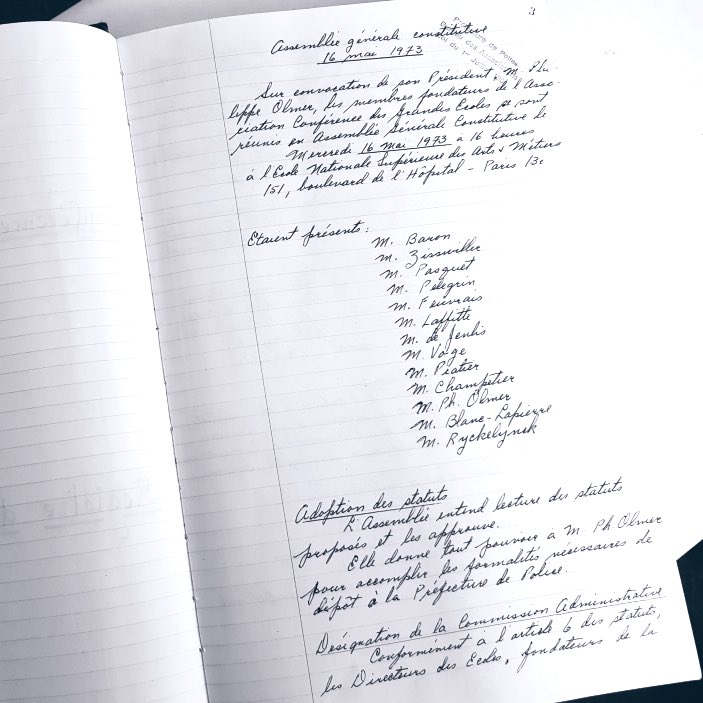 3
Assemblée générale constitutive
16 mai 1973
Sur convocation de son Président, M. Phi-
lippe Olmer, les membres fondateurs de l'Asso-
ciation Conférence des Grandes Ecoles se sont
réunis en Assemblée Générale Constitutive le
Mercredi 16 Mai 1973 à 16 heures
à l'Ecole Nationale Supérieure des Arts & Métiers
151, boulevard de l'Hôpital - Paris 13e
Etaient présents :
M. Baron
M. Zisswiller
M. Pasquet
M. Pelegrin
M. Feuvrais
M. Laffitte
M. de Jenlis
M. Voge
M. Piatier
M. Champetier
M. Ph. Olmer
M. Blanc-Lapierre
M. Ryckelynck
Adoption des statuts
L'Assemblée entend lecture des statuts
proposés et les approuve.
Elle donne tout pouvoir à M. Ph Olmer
pour accomplir les formalités nécessaires de
dépôt à la Préfecture de Police.
Désignation de la Commission Administrative
Conformément à l'article 6 des statuts,
les Directeurs des Ecoles, fondateurs de la